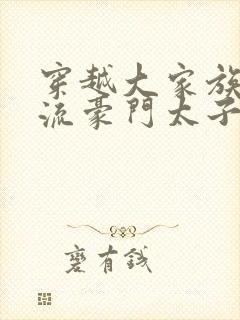 穿越大家族
流豪門太子
麼有錢